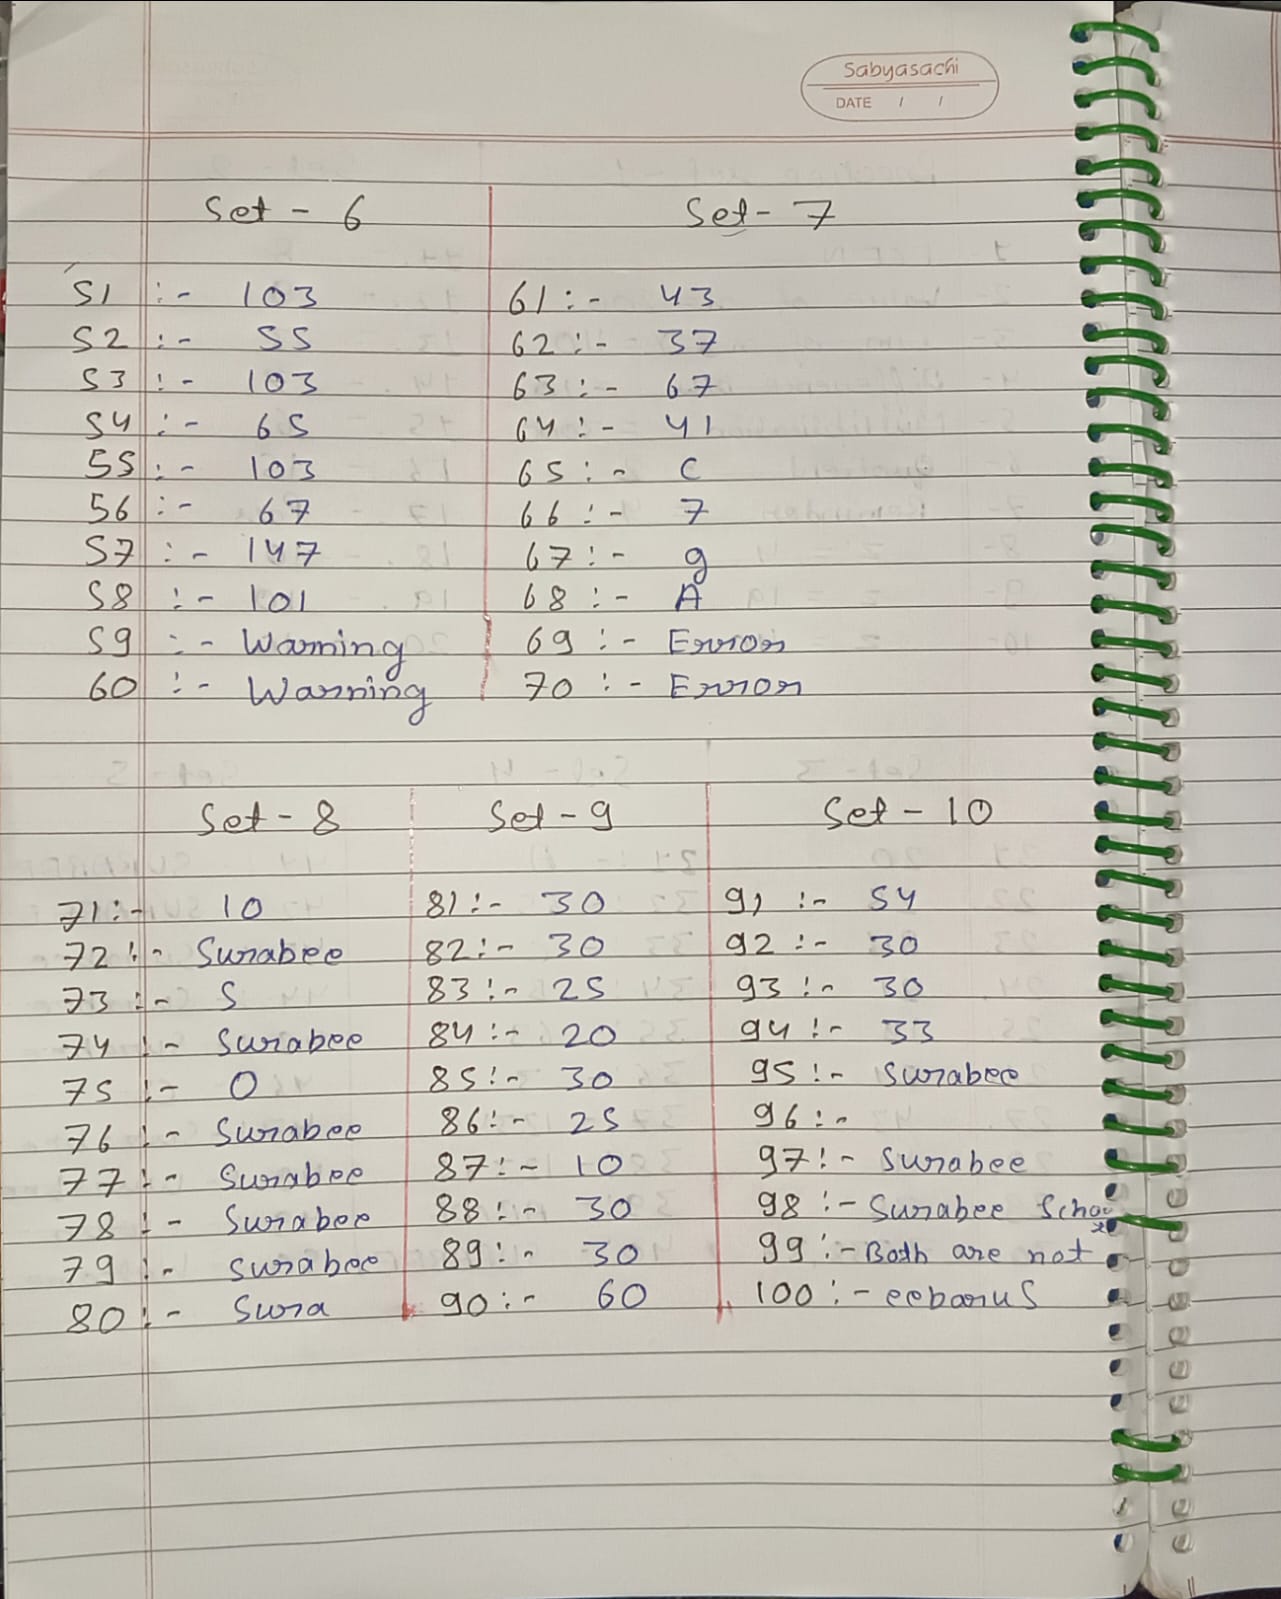 Sabyasachi
DATE / /
Set - 6
51 :- 103
52 :- 55
53 :- 103
54 :- 65
55 :- 103
56 :- 67
57 :- 147
58 :- 101
59 :- Warning
60 :- Warning
Set - 7
61 :- 43
62 :- 37
63 :- 67
64 :- 41
65 :- C
66 :- 7
67 :- g
68 :- A
69 :- Error
70 :- Error
Set - 8
71 :- 10
72 :- Surabee
73 :- S
74 :- Surabee
75 :- 0
76 :- Surabee
77 :- Surabee
78 :- Surabee
79 :- Surabee
80 :- Sura
Set - 9
81 :- 30
82 :- 30
83 :- 25
84 :- 20
85 :- 30
86 :- 25
87 :- 10
88 :- 30
89 :- 30
90 :- 60
Set - 10
91 :- 54
92 :- 30
93 :- 30
94 :- 33
95 :- Surabee
96 :-
97 :- Surabee
98 :- Surabee School
99 :- Both are not
100 :- eebaruS